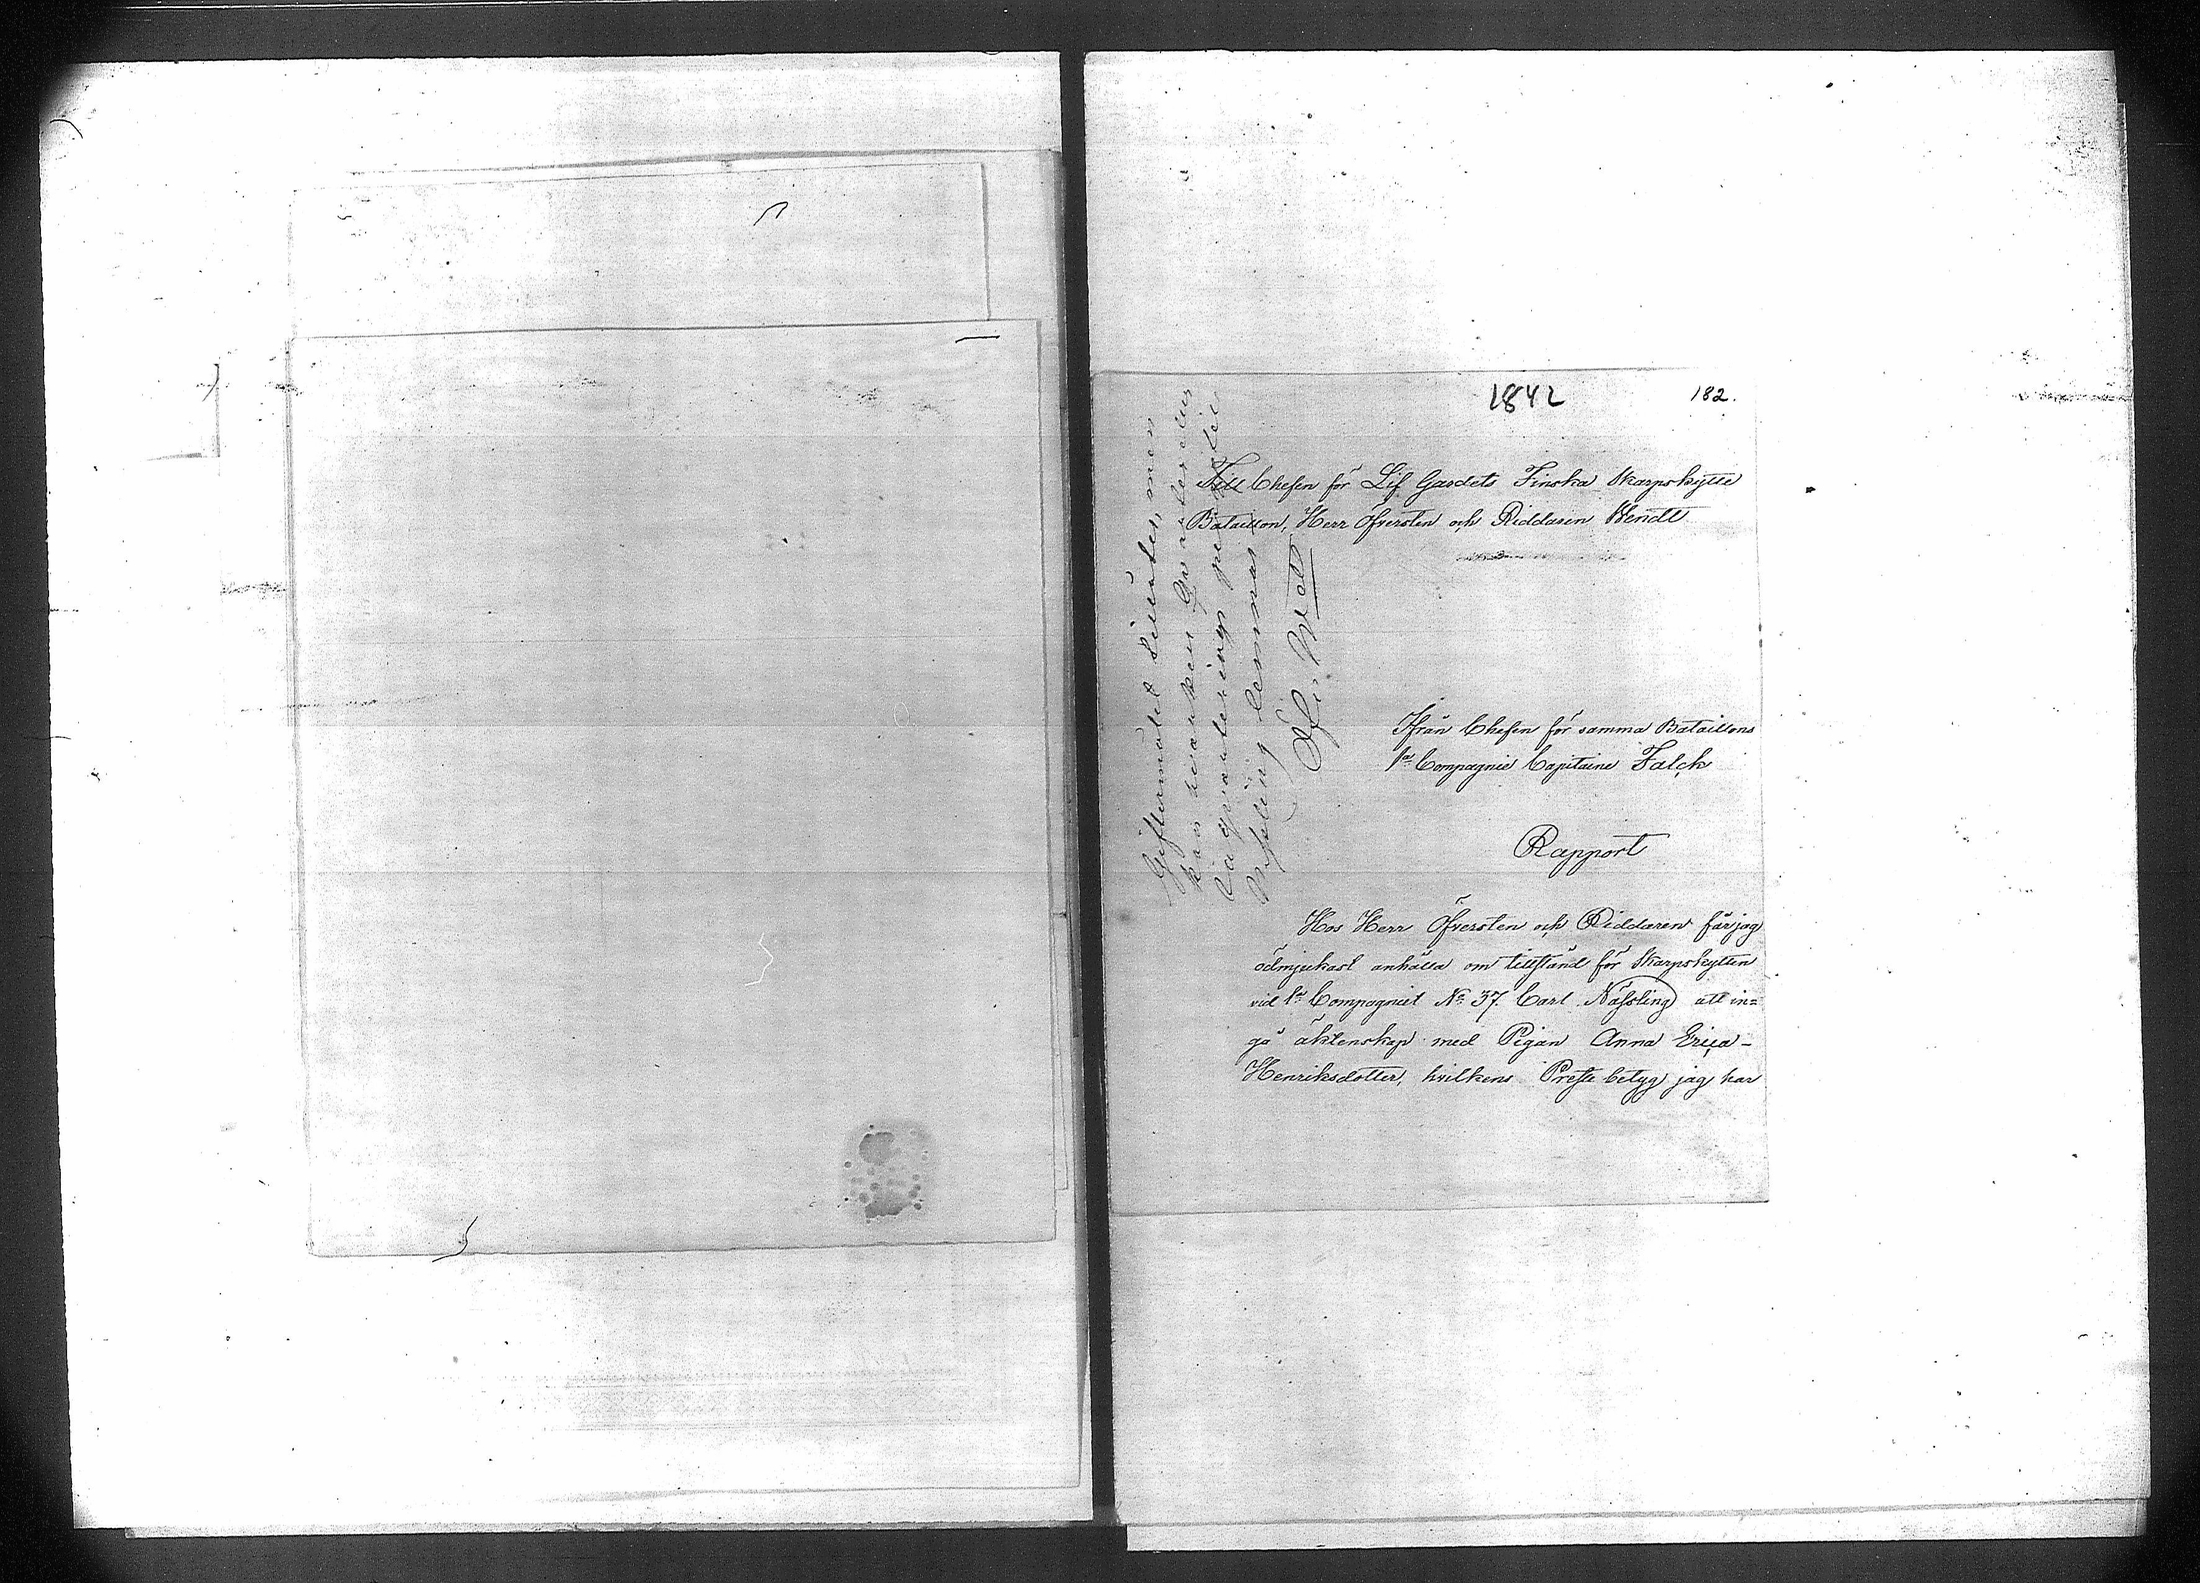 1842
182.
Till Chefen för Lif Gardets Finska Skarpskytte
Bataillon, Herr Öfversten och Riddaren Wendt
Ifrån Chefen för samma Bataillons
1:a Compagnie Capitaine Falck
Rapport
Hos Herr Öfversten och Riddaren får jag
ödmjukast anhålla om tillstånd för Skarpskytten
vid 1:a Compagniet No 37 Carl Nässling att in=
gå äktenskap med Pigan Anna Erica
Henriksdotter, hvilkens Preste betyg jag har
Giftermålet tillåtes, men
kan hvarken Qvarter eller
inqvarterings penningar
Nässling lemnas